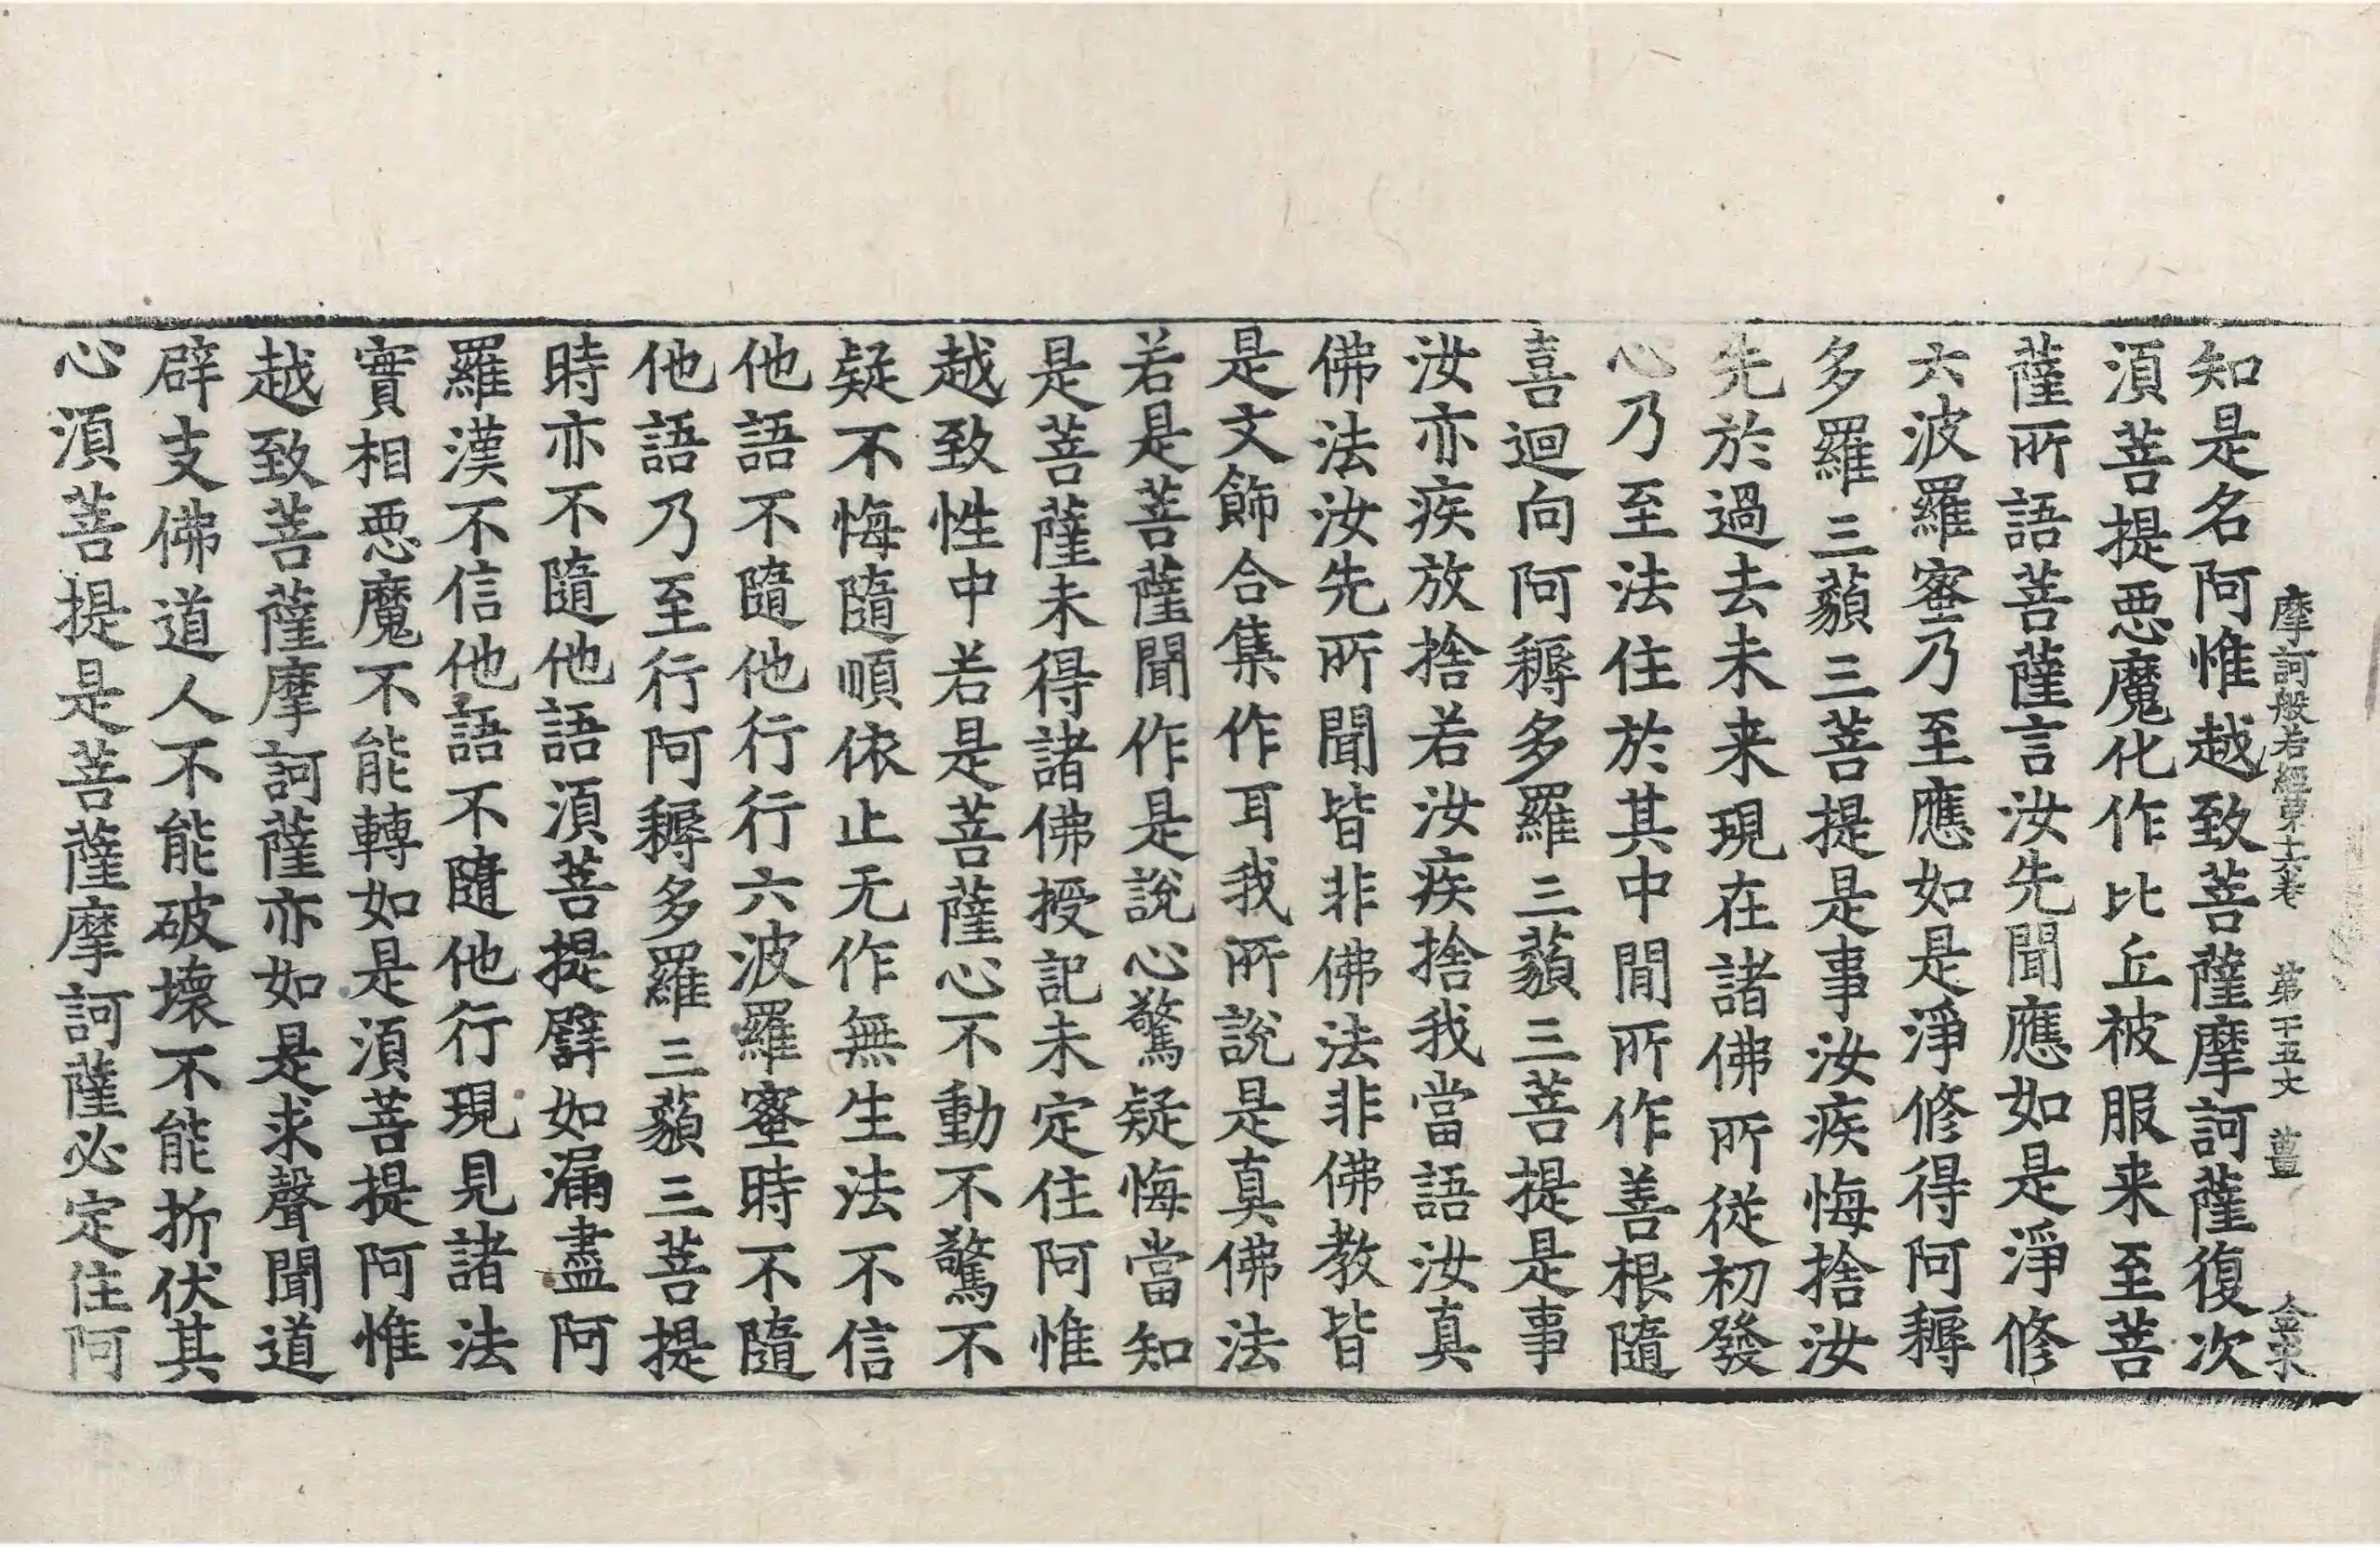 摩訶般若經第十六卷　第十五丈　薑　金求
知是名阿惟越致菩薩摩訶薩復次
湏菩提惡魔化作比丘被服来至菩
薩所語菩薩言汝先聞應如是淨修
六波羅蜜乃至應如是淨修得阿耨
多羅三藐三菩提是事汝疾悔捨汝
先於過去未来現在諸佛所從初發
心乃至法住於其中閒所作善根隨
喜迴向阿耨多羅三藐三菩提是事
汝亦疾放捨若汝疾捨我當語汝真
佛法汝先所聞皆非佛法非佛教皆
是文飾合集作耳我所說是真佛法
若是菩薩聞作是說心驚疑悔當知
是菩薩未得諸佛授記未定住阿惟
越致性中若是菩薩心不動不驚不
疑不悔隨順依止无作無生法不信
他語不隨他行行六波羅蜜時不隨
他語乃至行阿耨多羅三藐三菩提
時亦不隨他語湏菩提譬如漏盡阿
羅漢不信他語不隨他行現見諸法
實相惡魔不能轉如是湏菩提阿惟
越致菩薩摩訶薩亦如是求聲聞道
辟支佛道人不能破壞不能折伏其
心湏菩提是菩薩摩訶薩必定住阿